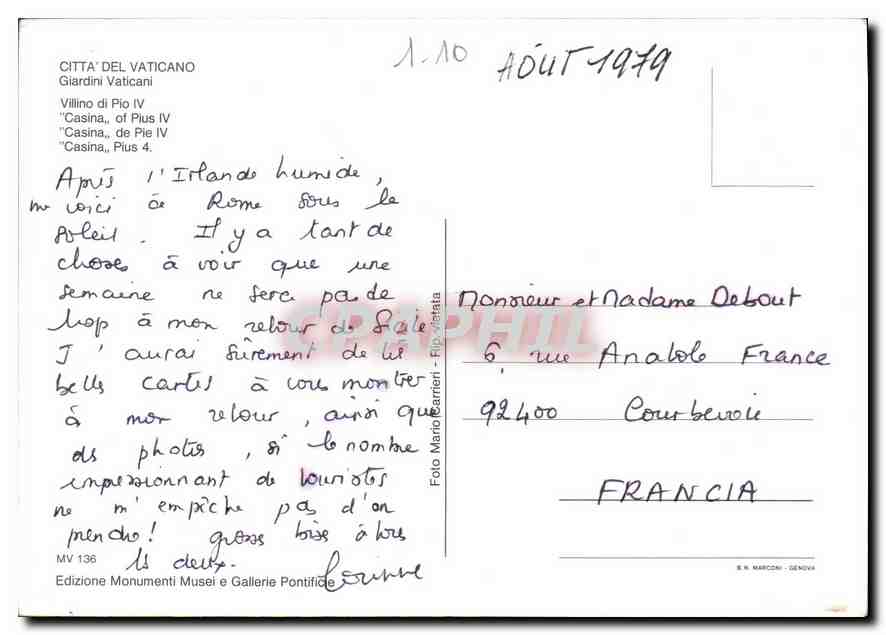 1.10
AOÛT 1979
CITTA' DEL VATICANO
Giardini Vaticani
Villino di Pio IV
"Casina„ of Pius IV
"Casina„ de Pie IV
"Casina„ Pius 4.
Après l'Irlande humide,
me voici à Rome sous le
soleil. Il y a tant de
choses à voir que une
semaine ne sera pas de
trop à mon retour de Sicile
J'aurai sûrement de très
belles cartes à vous montrer
à mon retour, ainsi que
des photos, si le nombre
impressionnant de touristes
ne m'empêche pas d'en
prendre! grosses bises à tous
les deux.
Corinne
MV 136
Edizione Monumenti Musei e Gallerie Pontificie
Foto Mario Carrieri - Rip. vietata
CPAPHIL
Monsieur et Madame Debout
6, rue Anatole France
92400 Courbevoie
FRANCIA
B.N. MARCONI - GENOVA